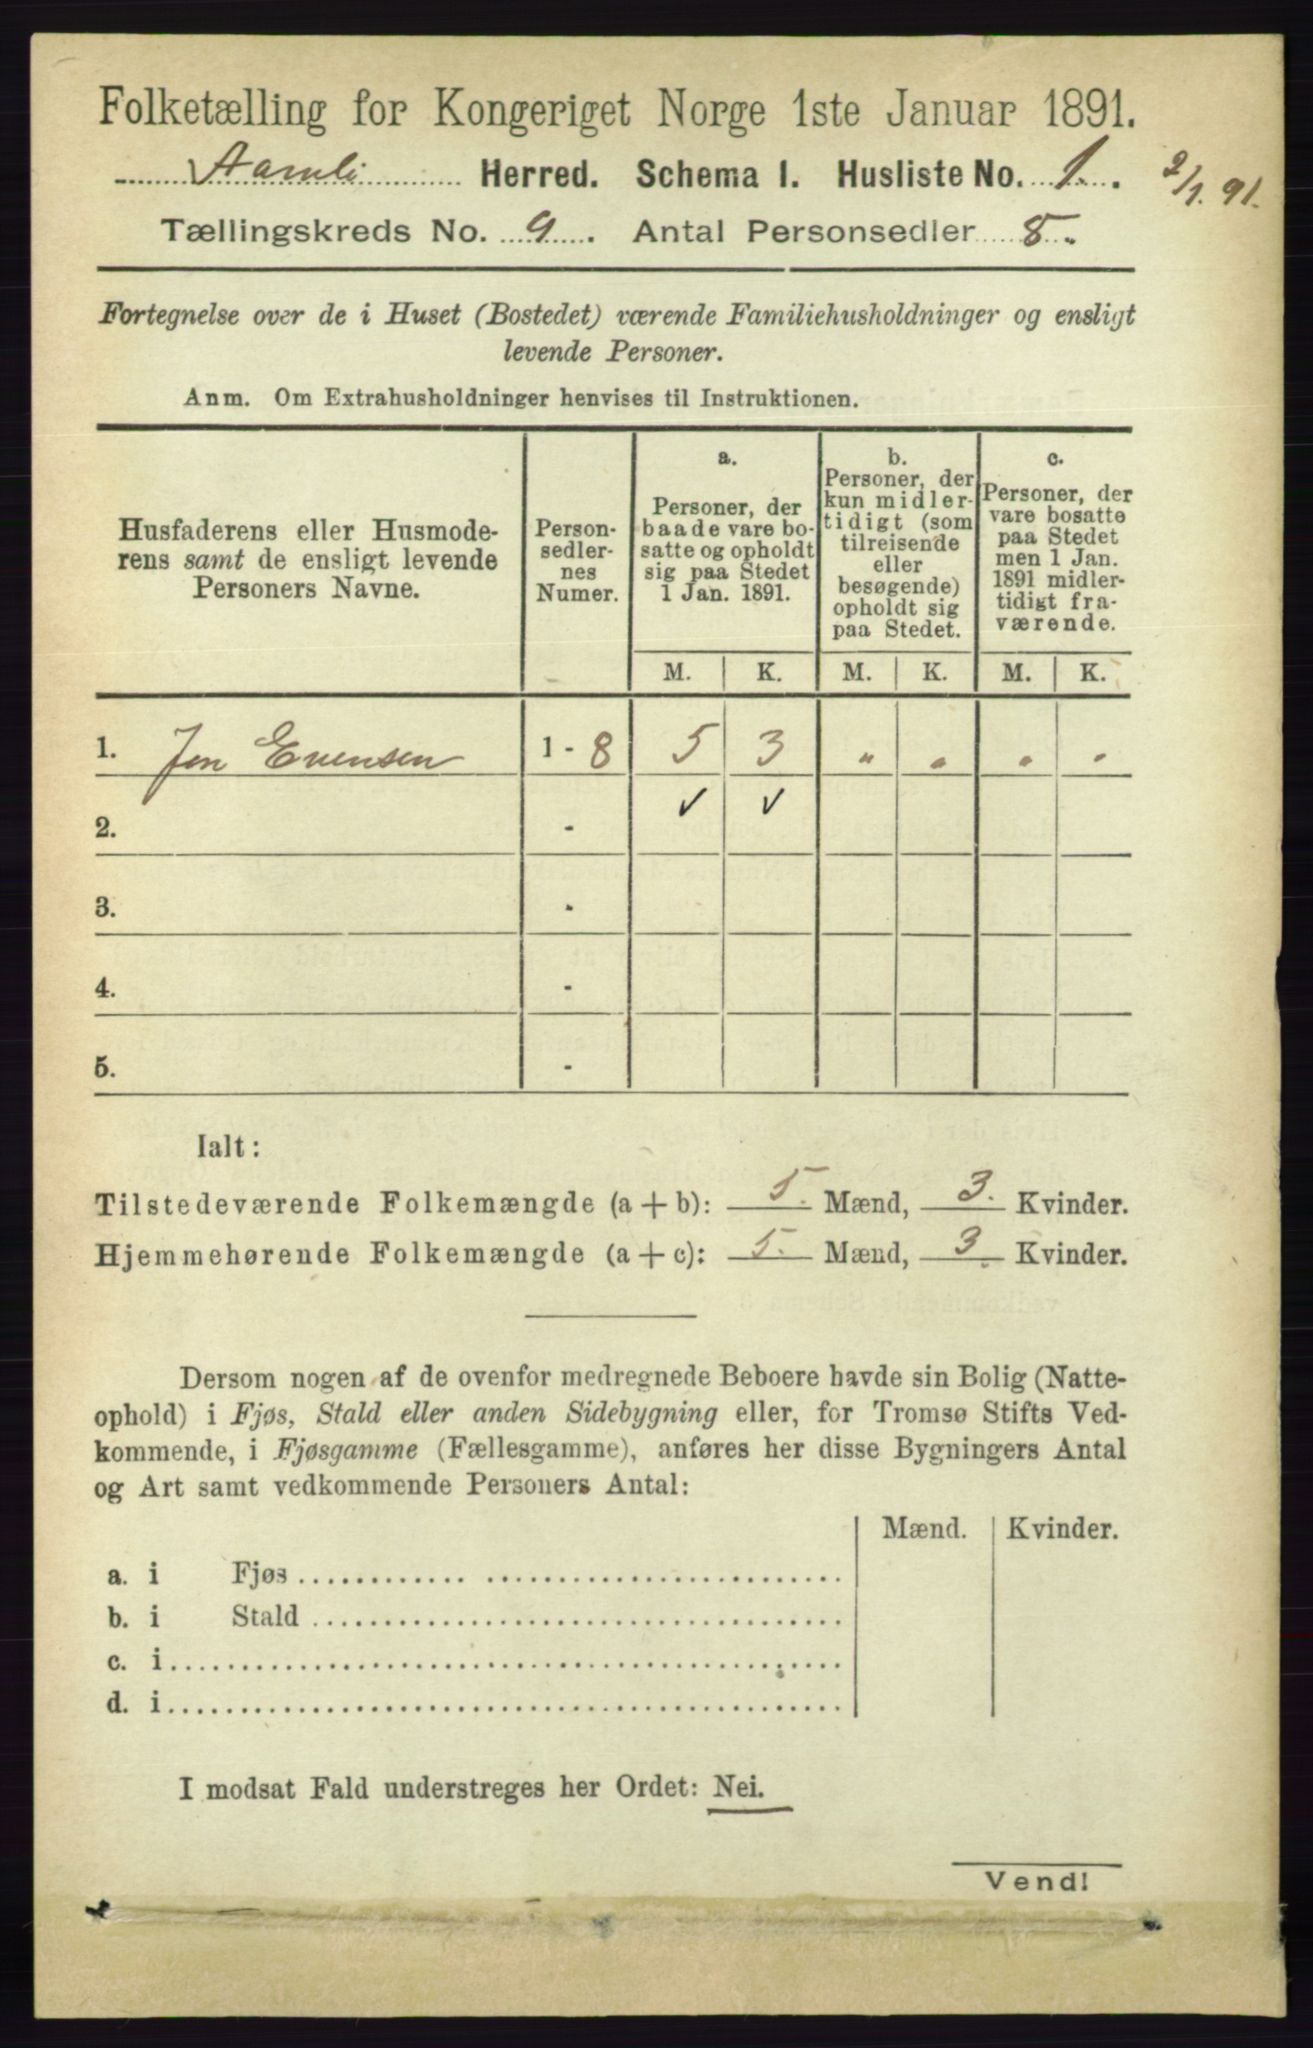 Folketælling for Kongeriget Norge 1ste Januar 1891.
Aamli Herred. Schema I. Husliste No. 1. 2/1. 91.
Tællingskreds No. 9. Antal Personsedler 8.
Fortegnelse over de i Huset (Bostedet) værende Familiehusholdninger og ensligt
levende Personer.
Anm. Om Extrahusholdninger henvises til Instruktionen.
Husfaderens eller Husmode-
rens samt de ensligt levende
Personers Navne.
Person-
sedler-
nes
Numer.
a.
Personer, der
baade vare bo-
satte og opholdt
sig paa Stedet
1 Jan. 1891.
b.
Personer, der
kun midler-
tidigt (som
tilreisende
eller
besøgende)
opholdt sig
paa Stedet.
c.
Personer, der
vare bosatte
paa Stedet
men 1 Jan.
1891 midler-
tidigt fra-
værende.
M. K. M. K. M. K.
1. Jon Evensen 1 - 8 5 3 " " " "
2. - ✓ ✓
3. -
4. -
5. -
Ialt:
Tilstedeværende Folkemængde (a + b): 5. Mænd, 3. Kvinder.
Hjemmehørende Folkemængde (a + c): 5. Mænd, 3. Kvinder.
Dersom nogen af de ovenfor medregnede Beboere havde sin Bolig (Natte-
ophold) i Fjøs, Stald eller anden Sidebygning eller, for Tromsø Stifts Ved-
kommende, i Fjøsgamme (Fællesgamme), anføres her disse Bygningers Antal
og Art samt vedkommende Personers Antal:
Mænd. Kvinder.
a. i Fjøs
b. i Stald
c. i
d. i
I modsat Fald understreges her Ordet: Nei.
Vend!